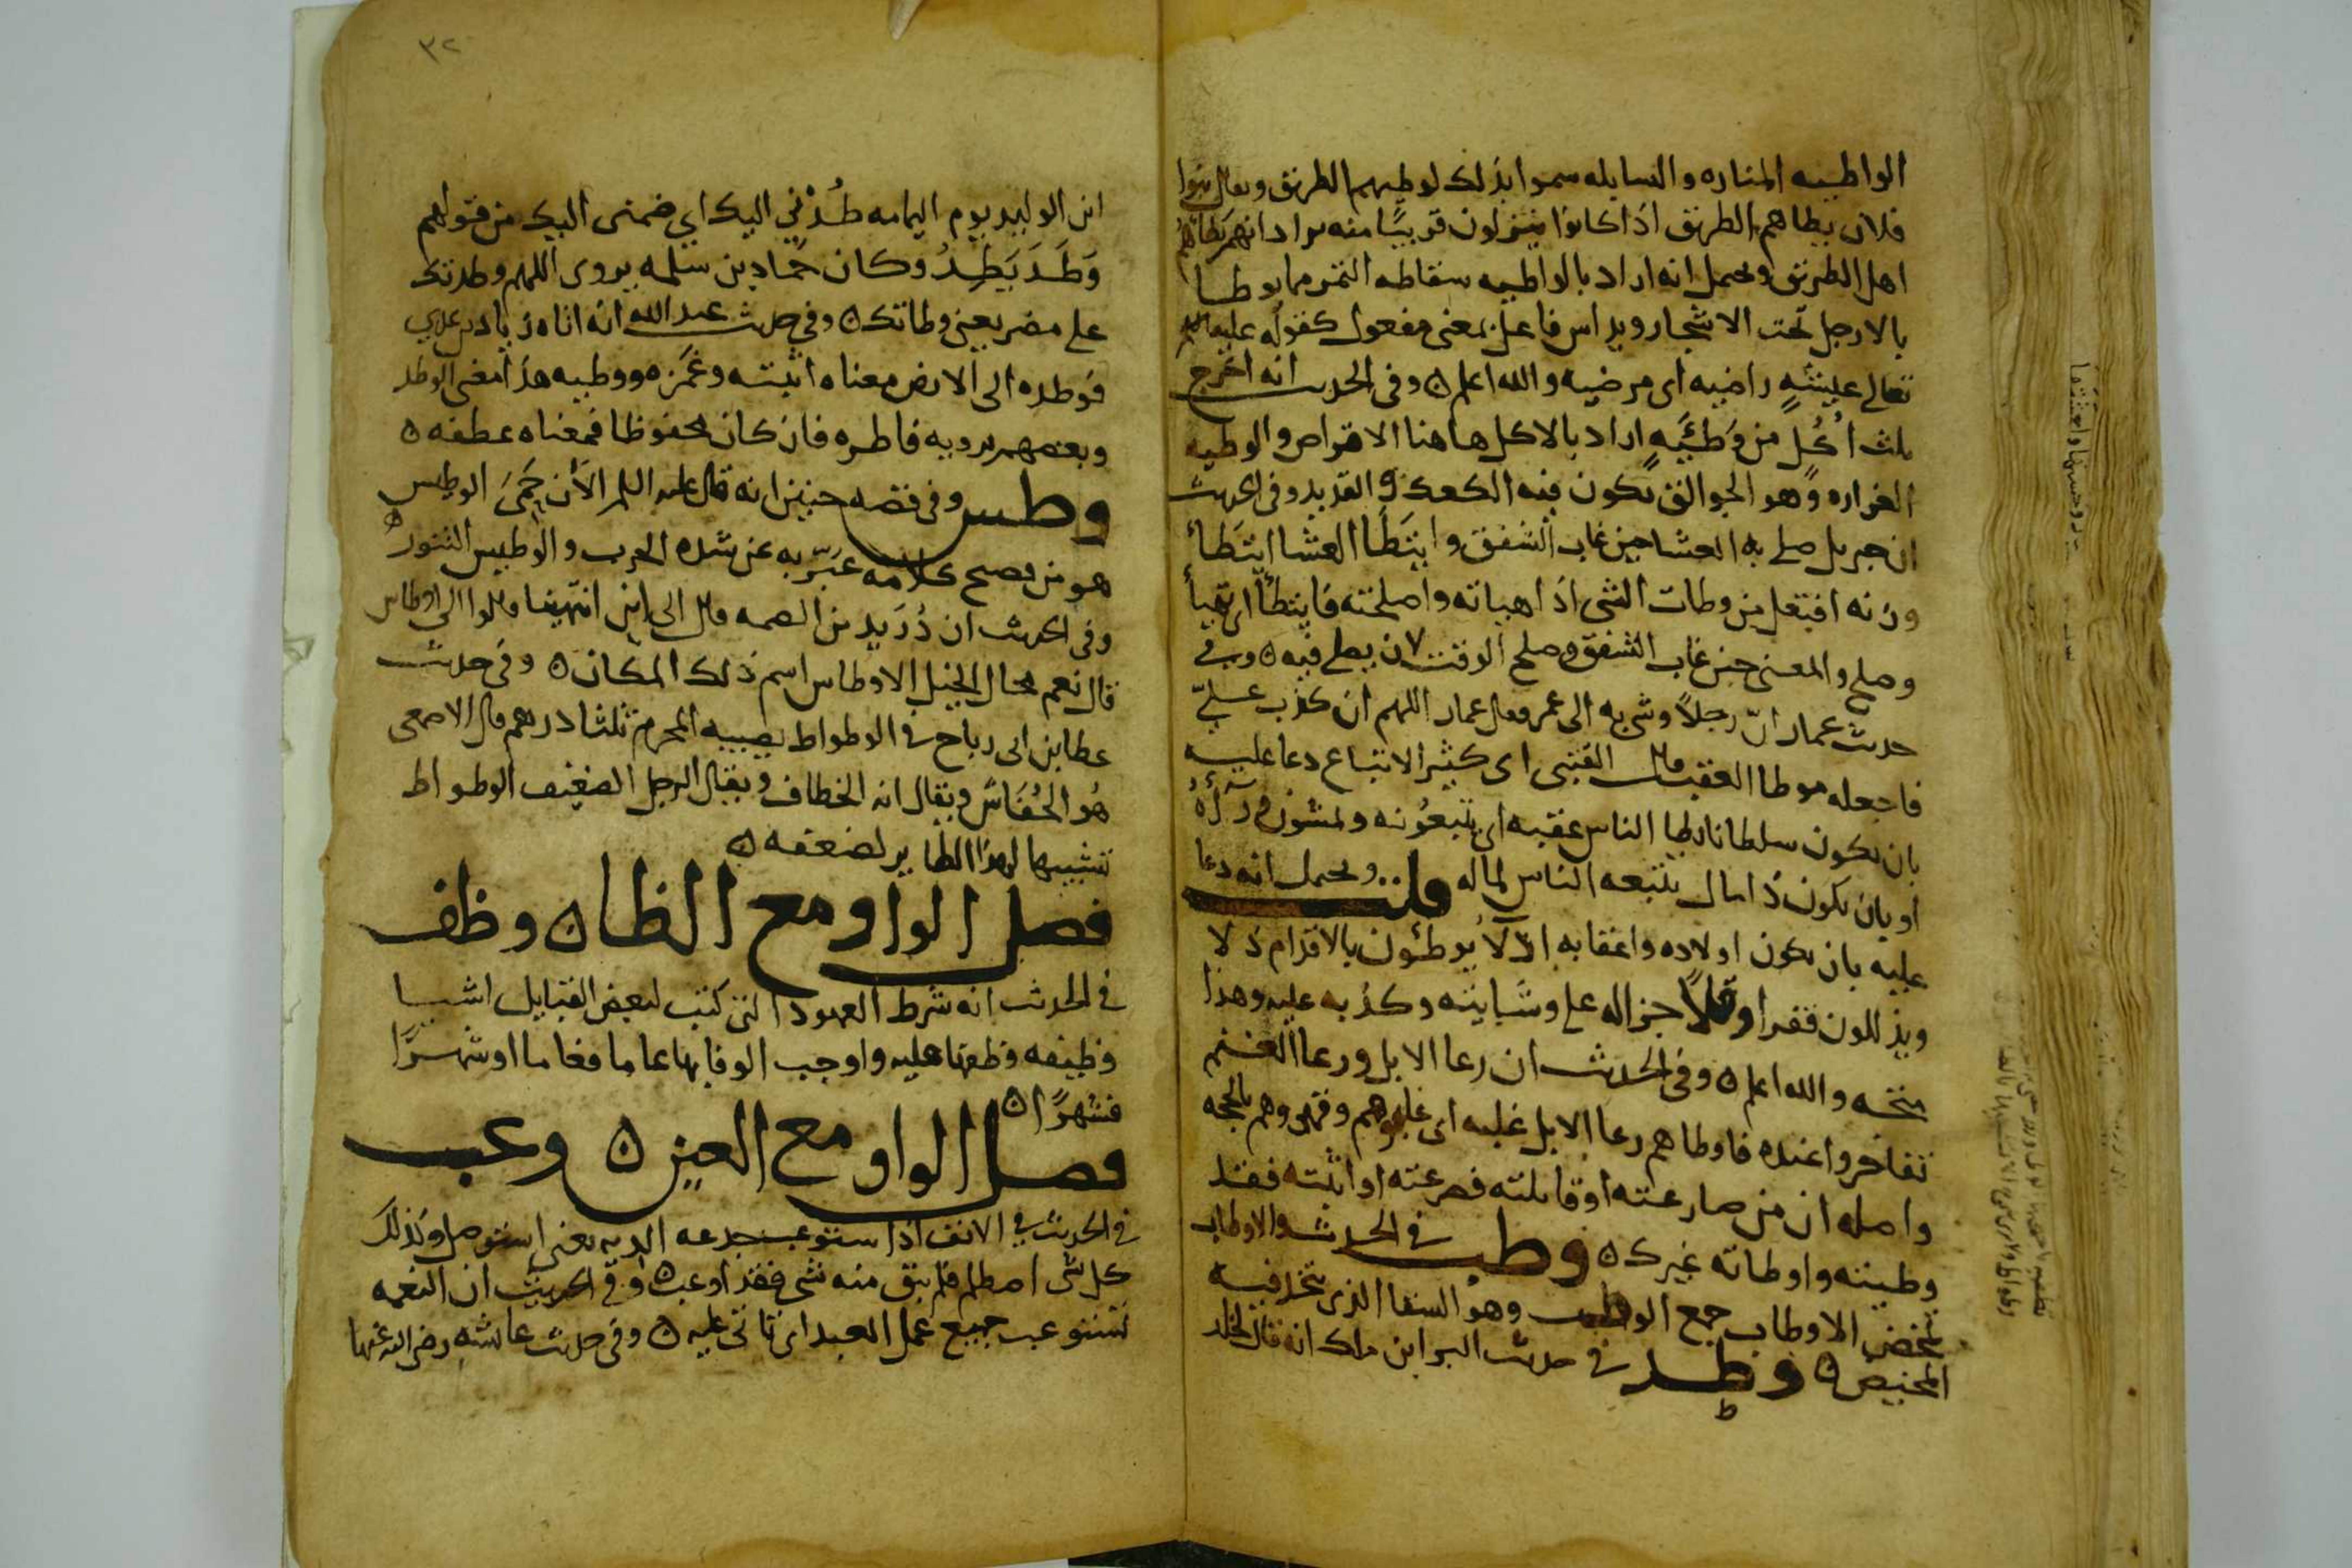 الواطيه الماره والسابله سموا بذلك لوطيهم الطريق ويقال بنوا
فلان يطاهم الطريق اذا كانوا ينزلون قريبًا منه يراد انهم يطاهم
اهل الطريق ويحمل انه اراد بالواطيه سقاطه التمر مما يوطا
بالارجل تحت الاشجار ويداس فاعل بمعنى مفعول كقوله
تعالى عيشةٍ راضيه اى مرضيه والله اعلم ه وفى الحديث انه اخرج
ثلث أُكُلٍ من وَطيَّه اراد بالاكل هاهنا الاقراص والوطيه
الغراره وهو الجوالق يكون فيه الكعك والقديد وفى الحديث
ان جبريل صلى به العشا حين غاب الشفق وايتَطَا العشا ايتَطأ
وزنه افتعل من وطات الشى اذا هياته واصلحته فايتطأ اى تهيأ
وصلح والمعنى حين غاب الشفق وصلح الوقت لان يصلى فيه ه وفى
حديث عمار انّ رجلاً وشى به الى عمر فقال عمار اللهم ان كذب علىّ
فاجعله موطا العقب قال القتبى اى كثير الاتباع دعا عليه
بان يكون سلطانا يطا الناس عقبه اى يتبعُونه ويمشون ورآءَهُ
او بان يكون ذا مال يتبعه الناس لماله قلت ويحمل انه دعا
عليه بان يكون اولاده واعقابه اذلاّ يوطئون بالاقدام ذلا
ويذللون فقرا وقلاًّ جزا له على وشايته وكذبه عليه وهذا
متجه والله اعلم ه وفى الحديث ان رعا الابل ورعا الغنم
تفاخروا عنده فاوطاهم رعا الابل غلبه اى غلبوهم وقهروهم بالحجه
واصله ان من صارعته او قاتلته فصرعته او اثبته فقد
وطيته واوطاته غيرك ه وطب فى الحديث والاوطاب
تمخض الاوطاب جمع الوطب وهو السقا الذى يتخذ فيه
المخيض ه وطد فى حديث البرا ابن مالك انه قال لخلد
٣٢
ابن الوليد يوم اليمامه طُدْنِي اليك اي ضمنى اليك من قولهم
وَطَدَ يَطِدُ وكان حمّاد بن سلمه يروى اللهم وطدتك
على مضر يعنى وطاتك ه وفى حديث عبد الله انه اتاه زياد بن عدي
فوطده الى الارض معناه اثبته وغمَزه ووطيه هذا معنى الوطد
وبعضهم يرويه فاطره فان كان محفوظا فمعناه عطفه ه
وطس وفى قصه حنين انه قال عليه السلم الآن حَمِىَ الوطيس
هو من فصيح كلامه عَبَّر به عن شده الحرب والوطيس التنور ه
وفى الحديث ان دُرَيد بن الصمه قال الى اين انتهينا قالوا الى اوطاس
قال نعم مجال الخيل الاوطاس اسم ذلك المكان ه وفى حديث
عطا بن ابى رباح فى الوطواط يصيبه المحرم ثلثا درهم قال الاصمعى
هُو الخُفَّاش ويقال انه الخطاف ويقال الرجل الضعيف الوطواط
تشبيها لهذا الطاير لضعفه ه
فصل الواو مع الظا ه وظف
فى الحديث انه شرط العهود التى كتب لبعض القبايل اشيا
وظيفه وظفها عليه واوجب الوفا بها عاما فعاما او شهرًا
فشهرًا ه
فصل الواو مع العين ه وعب
فى الحديث فى الانف اذا استوعب جدعه الديه يعنى استوصل وكذلك
كل شى اصطلم فلم يبق منه شى فقد اوعب ه وفى الحديث ان النعمه
تستوعب جميع عمل العبد اى تاتى عليه ه وفى حديث عايشه رضى الله عنها